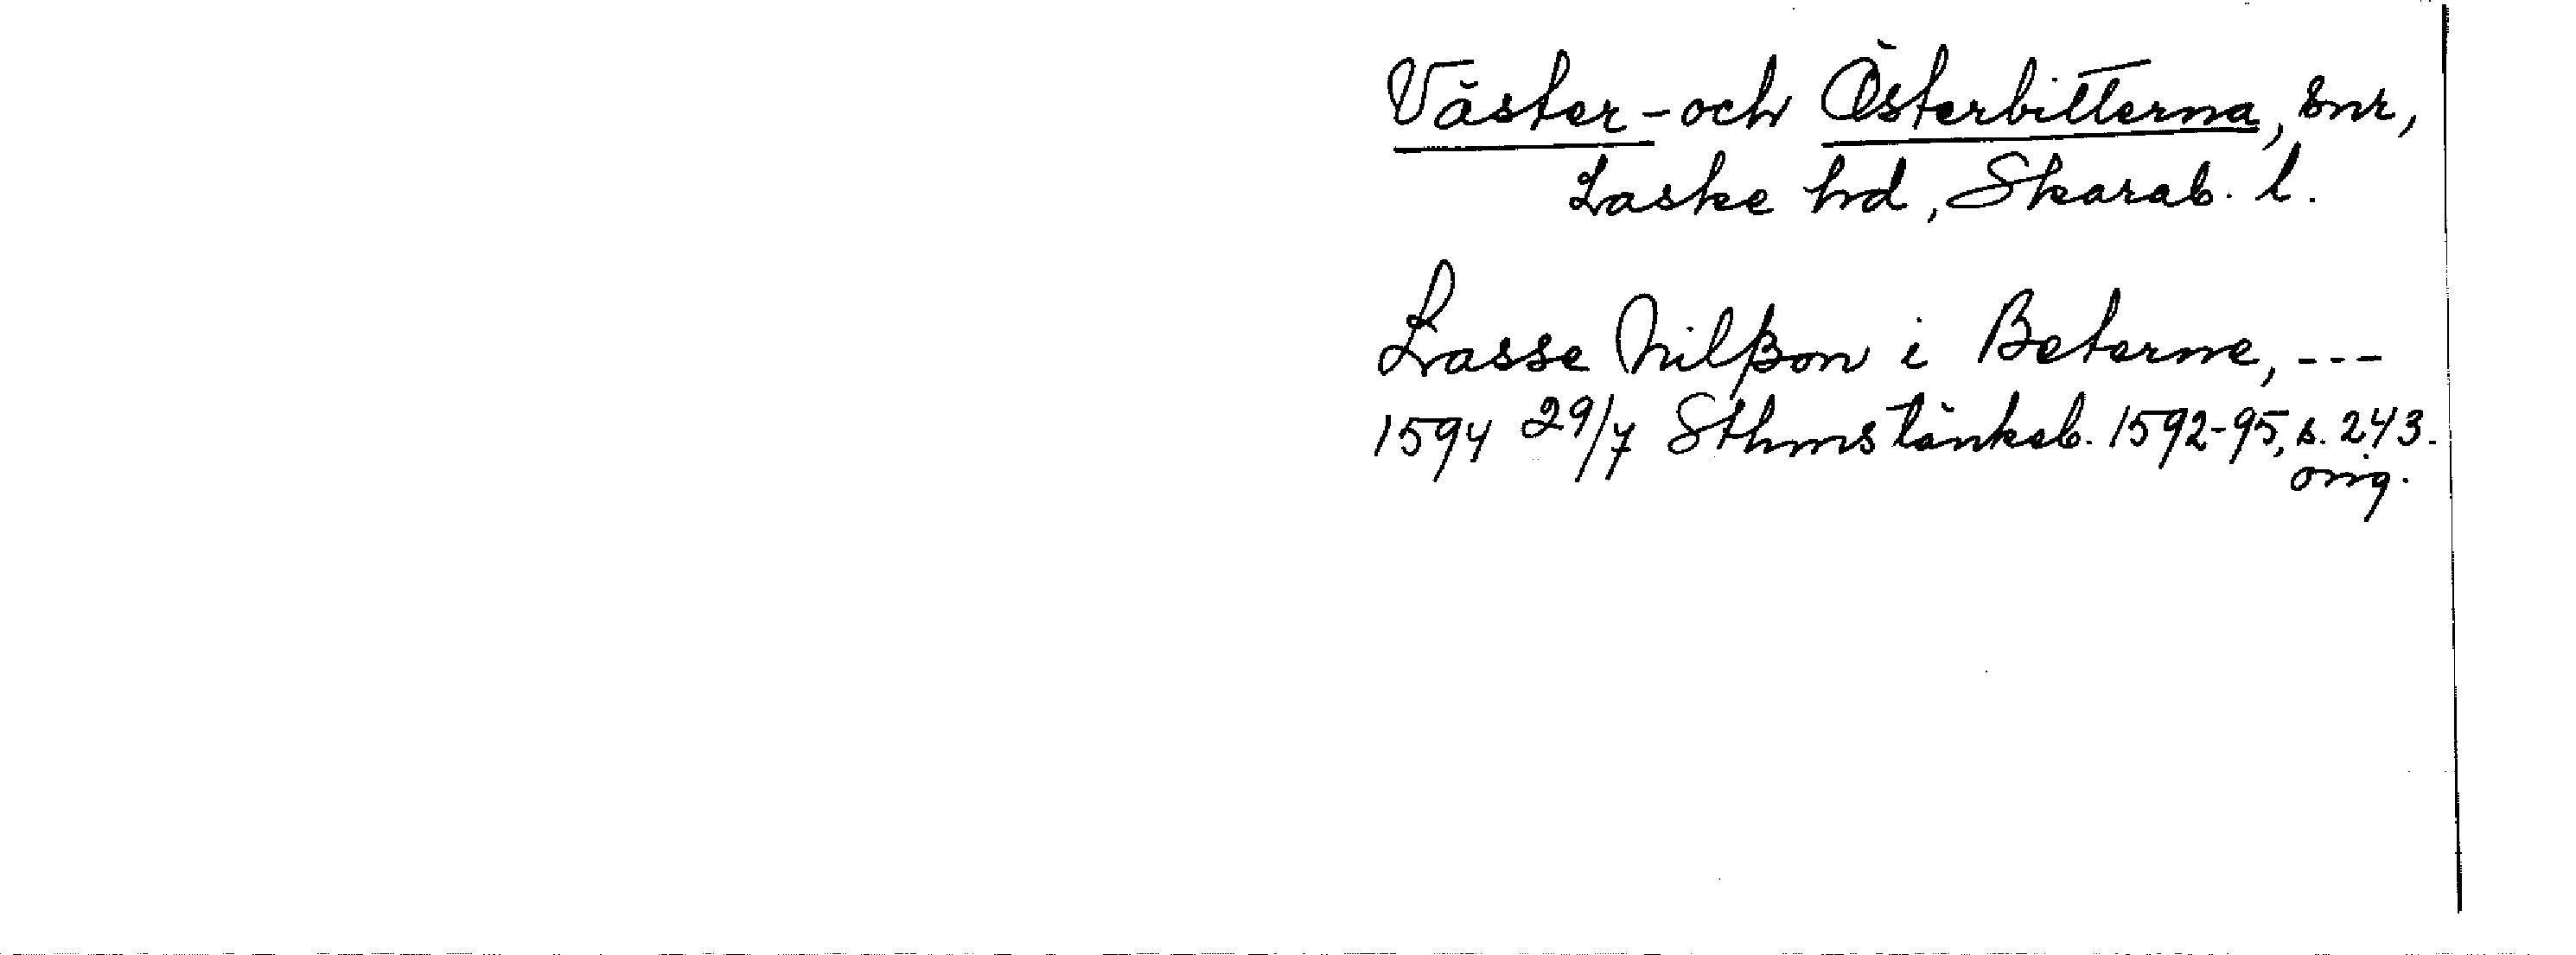 Väster- och Österbitterna, snr,
Laske hd, Skarab. l.
Lasse Nilßon i Beterne, ---
1594 29/7 Sthms tänkeb. 1592-95, s. 243.
orig.